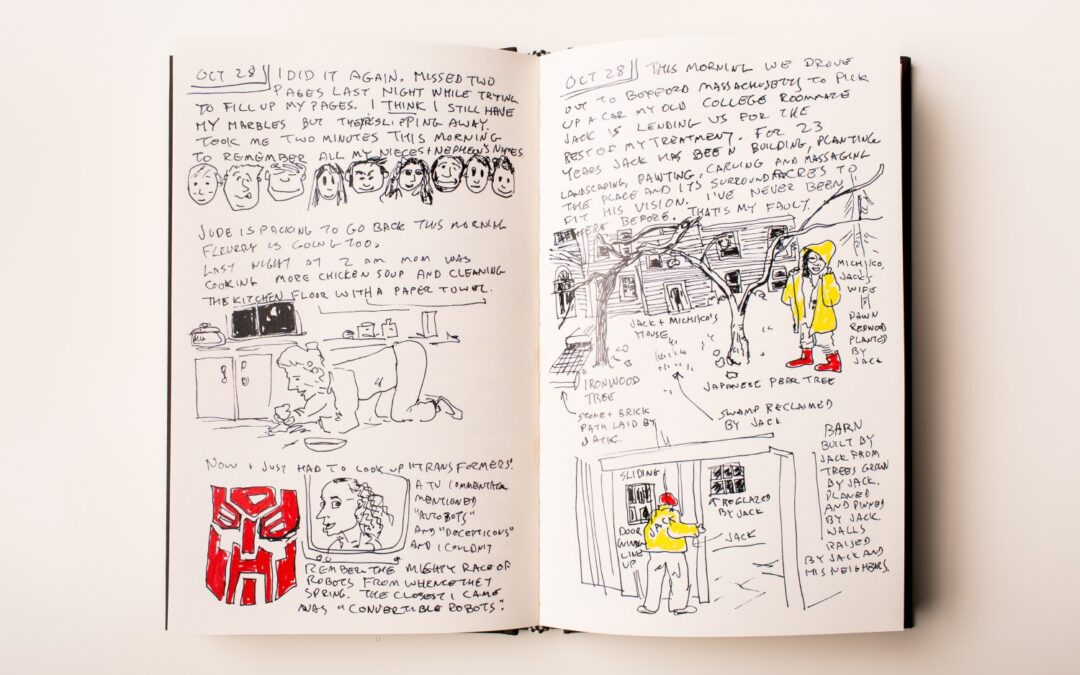 OCT 28 I DID IT AGAIN. MISSED TWO
PAGES LAST NIGHT WHILE TRYING
TO FILL UP MY PAGES. I THINK I STILL HAVE
MY MARBLES BUT THEY'RE SLIPPING AWAY.
TOOK ME TWO MINUTES THIS MORNING
TO REMEMBER ALL MY NIECES + NEPHEW'S NAMES
JUDE IS PACKING TO GO BACK THIS MORNING
FLEURRY IS GOING TOO.
LAST NIGHT AT 2 AM MOM WAS
COOKING MORE CHICKEN SOUP AND CLEANING
THE KITCHEN FLOOR WITH A PAPER TOWEL.
NOW I JUST HAD TO LOOK UP "TRANSFORMERS".
A TV COMMENTATOR
MENTIONED
"AUTOBOTS"
AND "DECEPTICONS"
AND I COULDN'T
REMBER THE MIGHTY RACE OF
ROBOTS FROM WHENCE THEY
SPRING. THE CLOSEST I CAME
WAS "CONVERTIBLE ROBOTS".
OCT 28 THIS MORNING WE DROVE
OUT TO BOXFORD MASSACHUSETTS TO PICK
UP A CAR MY OLD COLLEGE ROOMMATE
JACK IS LENDING US FOR THE
REST OF MY TREATMENT. FOR 23
YEARS JACK HAS BEEN BUILDING, PLANTING
LANDSCAPING, PAINTING, CARVING AND MASSAGING
THE PLACE AND ITS SURROUND ACRES TO
FIT HIS VISION. I'VE NEVER BEEN
HERE BEFORE. THAT'S MY FAULT.
MICHIKO,
JACK'S
WIFE
JACK + MICHIKO'S
HOUSE
DAWN
REDWOOD
PLANTED
BY
JACK
IRONWOOD
TREE
JAPANESE PEAR TREE
STONE + BRICK
PATH LAID BY
JACK.
SWAMP RECLAIMED
BY JACK
SLIDING
DOOR
WINDOW
LINE
UP
REGLAZED
BY JACK
JACK
JACK
BARN
BUILT BY
JACK FROM
TREES GROWN
BY JACK.
PLANED
AND PINNED
BY JACK.
WALLS
RAISED
BY JACK AND
HIS NEIGHBORS.